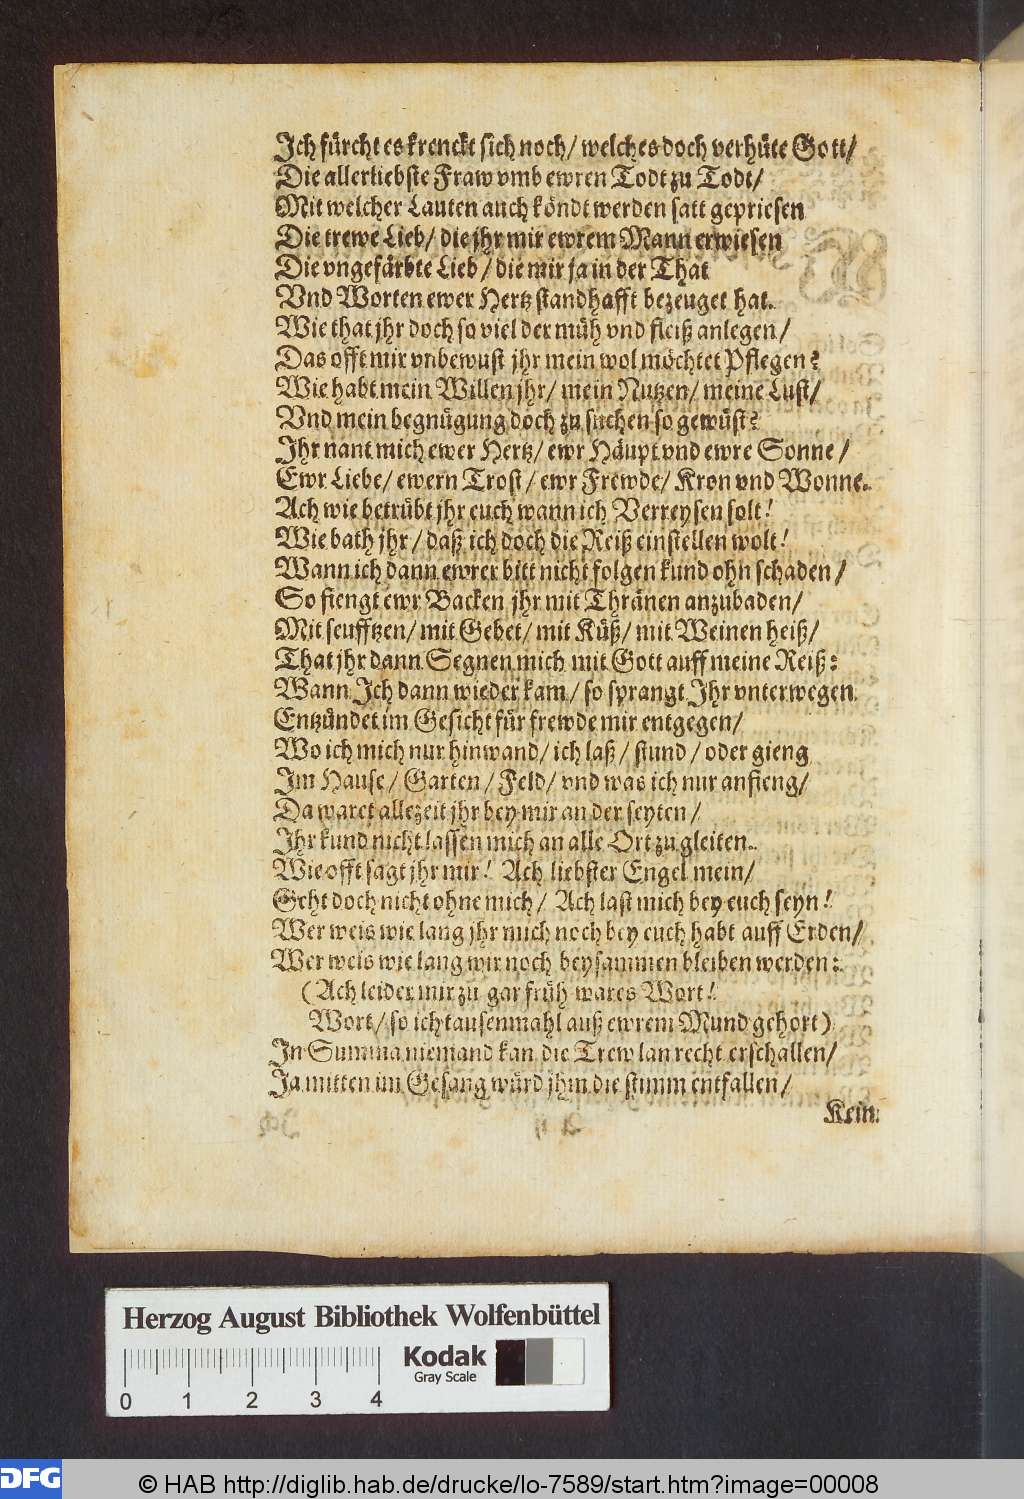 Ich fürcht es krenckt sich noch/ welches doch verhüte Gott/
Die allerliebste Fraw vmb ewren Todt zu Todt/
Mit welcher Lauten auch köndt werden satt gepriesen
Die trewe Lieb/ die jhr mir ewrem Mann erwiesen
Die vngefärbte Lieb/ die mir ja in der That
Vnd Worten ewer Hertz standhafft bezeuget hat.
Wie that jhr doch so viel der müh vnd fleiß anlegen/
Das offt mir vnbewust jhr mein wol möchtet Pflegen?
Wie habt mein Willen jhr/ mein Nutzen/ meine Lust/
Vnd mein begnügung doch zu suchen so gewüst?
Ihr nant mich ewer Hertz/ ewr Häupt vnd ewre Sonne/
Ewr Liebe/ ewern Trost/ ewr Frewde/ Kron vnd Wonne.
Ach wie betrübt jhr euch wann ich Verreysen solt!
Wie bath jhr/ daß ich doch die Reiß einstellen wolt!
Wann ich dann ewrer bitt nicht folgen kund ohn schaden/
So fiengt ewr Backen jhr mit Thränen anzubaden/
Mit seufftzen/ mit Gebet/ mit Küß/ mit Weinen heiß/
That jhr dann Segnen mich mit Gott auff meine Reiß:
Wann Ich dann wieder kam/ so sprangt Ihr vnterwegen
Entzündet im Gesicht für frewde mir entgegen/
Wo ich mich nur hinwand/ ich laß/ stund/ oder gieng
Im Hause/ Garten/ Feld/ vnd was ich nur anfieng/
Da waret allezeit jhr bey mir an der seyten/
Ihr kund nicht lassen mich an alle Ort zu gleiten.
Wie offt sagt jhr mir! Ach liebster Engel mein/
Geht doch nicht ohne mich/ Ach last mich bey euch seyn!
Wer weis wie lang jhr mich noch bey euch habt auff Erden/
Wer weis wie lang wir noch beysammen bleiben werden:
(Ach leider mir zu gar früh wares Wort!
Wort/ so ich tausenmahl auß ewrem Mund gehort)
In Summa niemand kan die Trew lan recht erschallen/
Ja mitten im Gesang würd jhm die stimm entfallen/
Kein
Herzog August Bibliothek Wolfenbüttel
Kodak
Gray Scale
0 1 2 3 4
DFG
© HAB http://diglib.hab.de/drucke/lo-7589/start.htm?image=00008